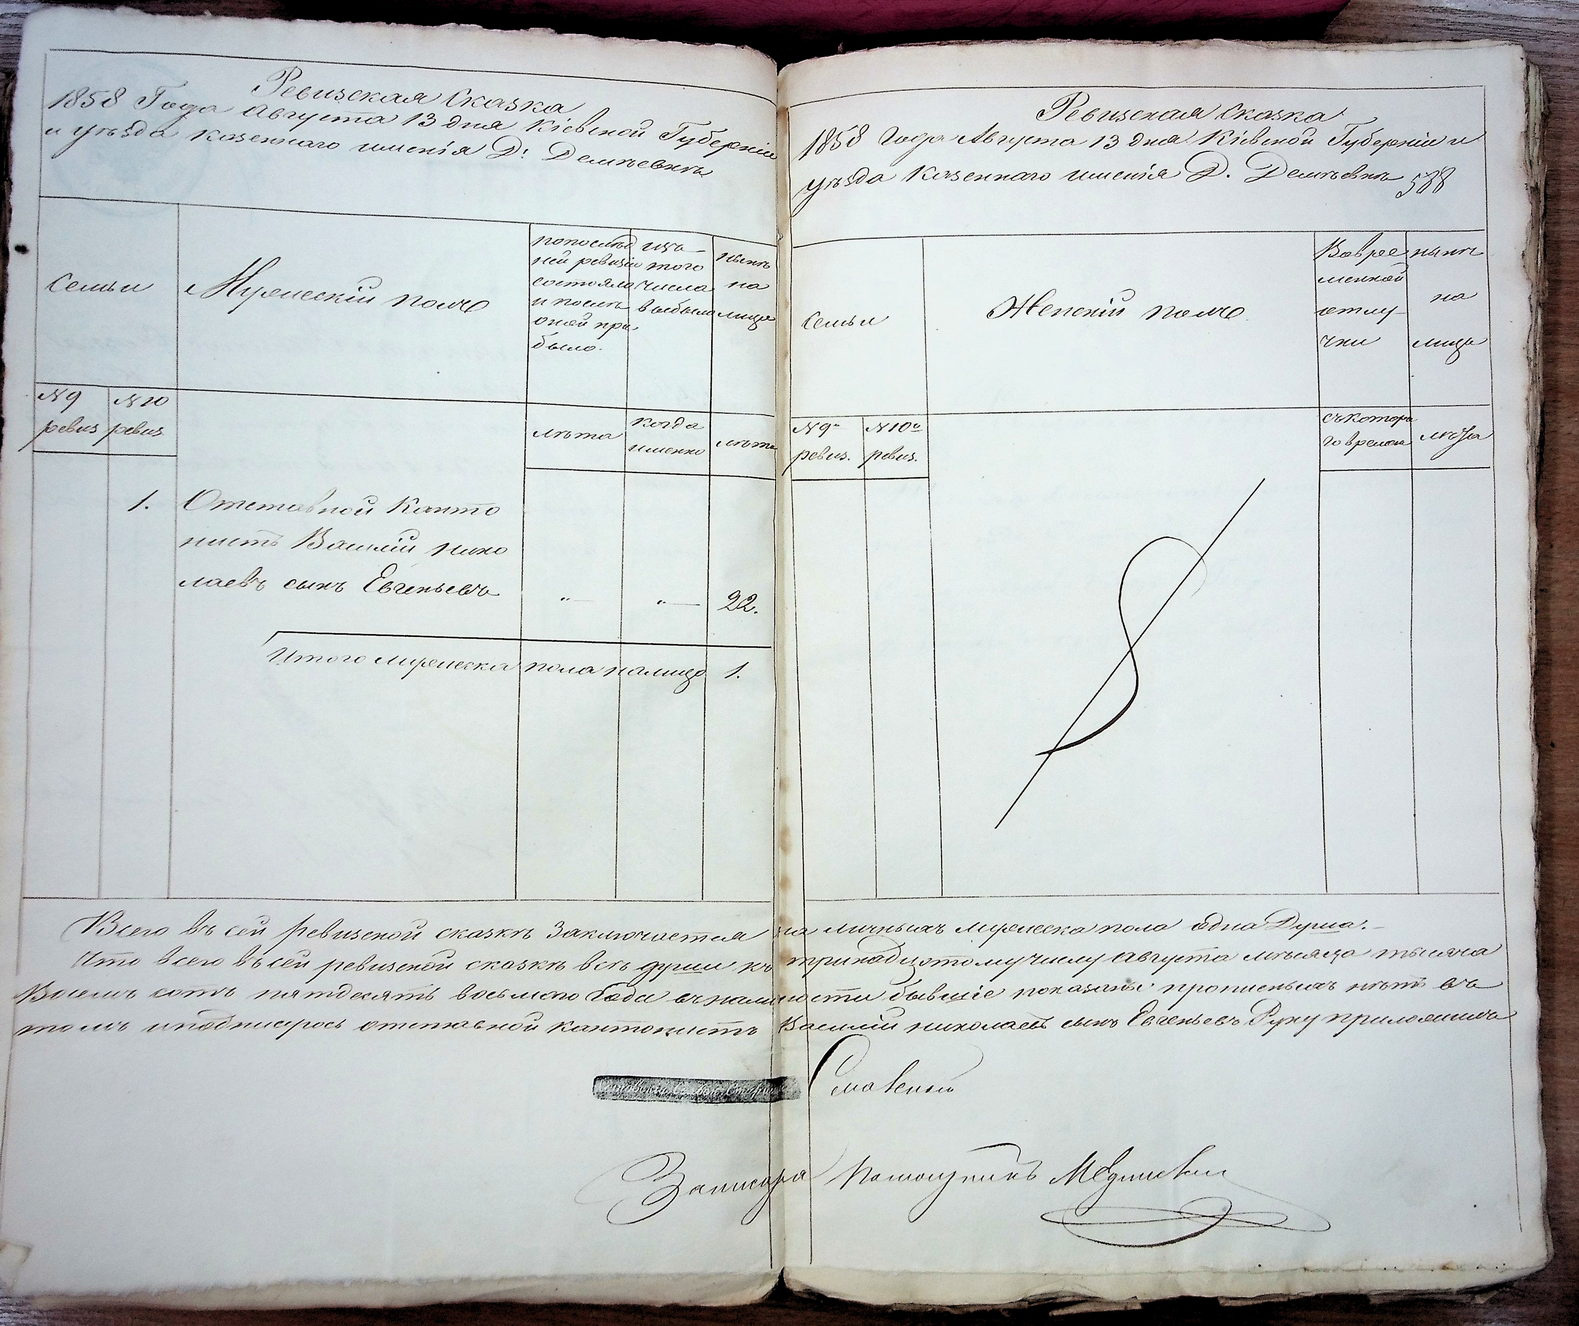 Ревизская Сказка
1858 Года Августа 13 дня Кіевской Губерніи
и уѣзда козеннаго имѣнія Д. Демѣевки
Семьи
Мужескій полъ
попослѣд
ней ревизіи
состояло
и послѣ
оной при
было.
изъ
того
числа
выбыло
нынѣ
на
лицо
№ 9
ревиз
№ 10
ревиз
лѣта
когда
именно
лѣта
1. Отставной Канто
нистъ Василій Нико
лаевъ сынъ Евгеньевъ „— „— 22.
Итого мужеска пола налицо 1.
Ревизская Сказка
1858 Года Августа 13 дня Кіевской Губерніи и
уѣзда козеннаго имѣнія Д. Демѣевки 588
Семьи
Женскій полъ
Во врѣ
менной
отлу
чки
нынѣ
на
лицо
№ 9о
ревиз.
№ 10о
ревиз.
съ котора
го времени
лѣта
Всего въ сей ревизской сказкѣ Заключается на личныхъ мужеска пола Одна Душа.
Что всего въ сей ревизской сказкѣ всѣ души къ тринадцатому числу августа мѣсяца тысяча
Восемь сотъ пятдесятъ восьмого Года въ наличности бывшіе показаны прописныхъ нѣтъ въ
томъ и подписуюсь отставной кантонистъ Василій Николаевъ сынъ Евгеньевъ Руку приложилъ
Записаря Помощникъ